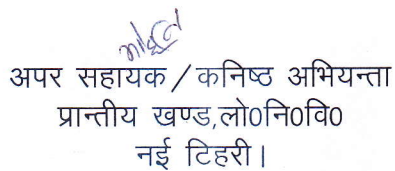 अपर सहायक / कनिष्ठ अभियन्ता
प्रान्तीय खण्ड,लो0नि0वि0
नई टिहरी।